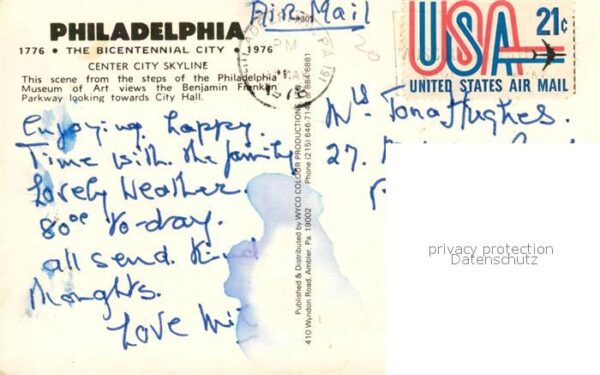 PHILADELPHIA
1776 • THE BICENTENNIAL CITY • 1976
CENTER CITY SKYLINE
This scene from the steps of the Philadelphia
Museum of Art views the Benjamin Franklin
Parkway looking towards City Hall.
Enjoying happy
Time with the family
Lovely Weather.
80°F to-day.
all send Kind
Thoughts.
Love
Published & Distributed by WYCO COLOUR PRODUCTIONS
410 Wyndon Road, Ambler, Pa. 19002
Phone (215) 646-71
or 884-6881
Air-Mail
PM
PA 191
20
USA 21c
UNITED STATES AIR MAIL
Hughes.
27.
privacy protection
Datenschutz